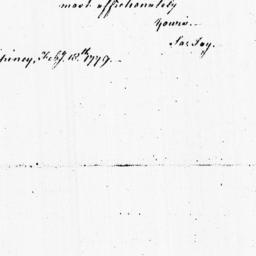 most affectionately
Yours.—
Jas Jay.
Feby. 18.th 1779.—